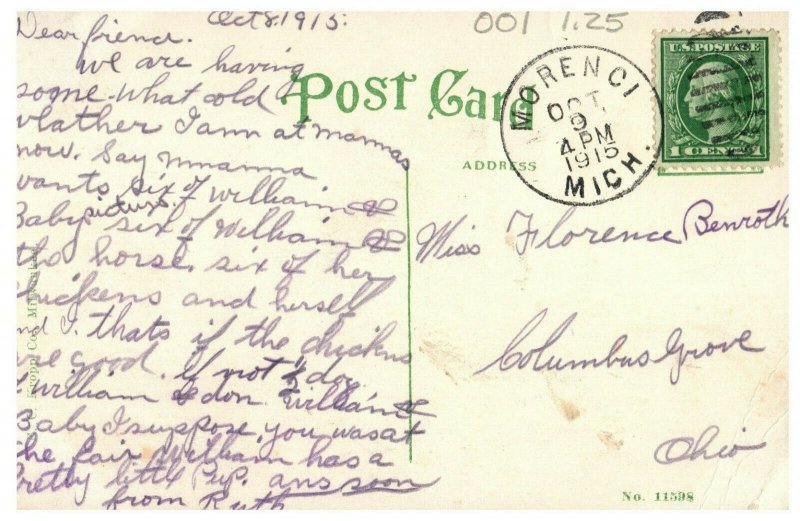 Oct 8. 1915.
001 1.25
Dear friend.
we are having
some-what cold
wlather I am at mamas
now. Say Mmanna
wants six of William &
Baby picturs. six of William &
the horse. six of her
chickens and herself
and I. thats if the chickns
are good. if not ½ doz
William & don William &
Baby I suppose, you was at
the fair William has a
Pretty little Pup. ans soon
from Ruth
Post Card
ADDRESS
MORENCI
OCT.
9
4 PM
1915
MICH.
U.S. POSTAGE
1 CENT 1
Miss Florence Benroth
Columbus Grove
Ohio
No. 11598